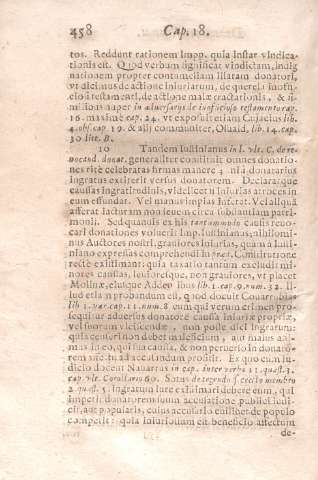 458 Cap. 18.
tos. Reddunt rationem Impp. quia instar vindica-
tionis est. Quod verbum significat vindictam, indig
nationem propter contumeliam illatam donatori,
vt dicimus de actione iniuriarum, de querela inoffi-
ciosi testamenti, de actione male tractationis, & si-
milibus nuper in aduersarijs de inofficioso testamento cap.
16. maxime cap. 24. vt exposuit etiam Cujacius lib
4. obs. cap. 19. & alij communiter, Osuald, lib. 14. cap.
30 litt. B.
10 Tandem Iustinianus in l. vlt. C. de re-
uocand. donat. generaliter constituit omnes donationes
ritè celebratas firmas manere, nisi donatarius
ingratus exsisterit versus donatorem. Declaratque
causas ingratitudinis, videlicet si iniurias atroces in
eum effundat. Vel manus impias inferat. Vel aliquã
afferat iacturam non leuem circa substantiam patri-
monij. Sed quamuis ex his tantummodo causis reuo-
cari donationes voluerit Imp. Iustinianus, nihilomi-
nus Auctores nostri, grauiores iniurias, quam à Iusti-
niano expressas comprehendi in praes. Constitutione
rectè existimant: quia taxatio tantum excludit mi-
nores causas, leuioresque, non grauiores, vt placet
Molinæ, eiusque Addentibus lib. 1. cap. 9. num. 32. Il-
lud etiam probandum est, quod docuit Couarrubias
lib. 1. var. cap. 11. num. 8 cum qui verum crimen pro-
sequitur aduersus donatorẽ causâ iniuriæ propriæ,
vel suorum vlciscendæ, non posse dici Ingratum:
quia censeri non debet maleficium, aut malus ani-
mus in eo, qui sua causa, & non peruerso in donato-
rem animo ad accusandum prosilit. Ex quo eum iu-
dicio docent Nauarrus in cap. inter verba 11. quæst. 3.
cap. vlt. Corollario 60. Sotus de tegendo secreto membro
2. quæst. 5. Ingratum iure existimari debere eum, qui
impetit donatorem suum accusatione publici iudi-
cij, aut popularis, cuius accusatio cuilibet de populo
competit: quia iniuriosum est beneficio affectum
de-